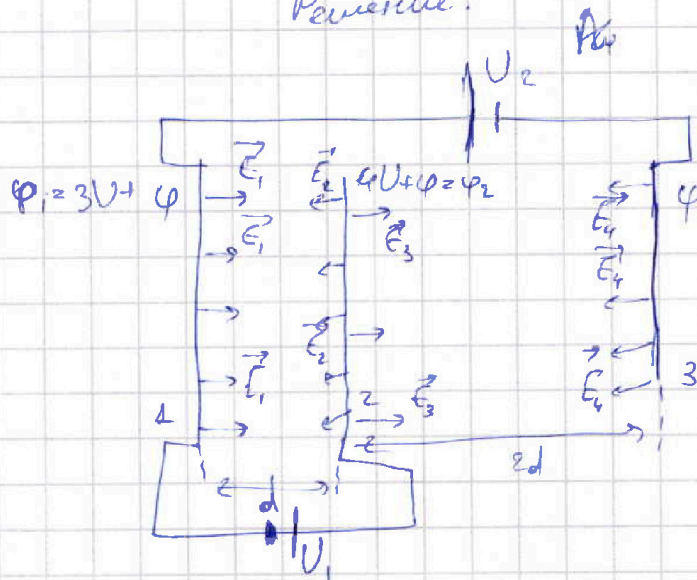 Решение.
U₂
φ₁ = 3U + φ
E⃗₁
E⃗₂
4U + φ = φ₂
φ
E⃗₁
E⃗₃
E⃗₄
E⃗₄
E⃗₂
E⃗₁
E⃗₃
E⃗₄
1
2
3
2d
d
U₁